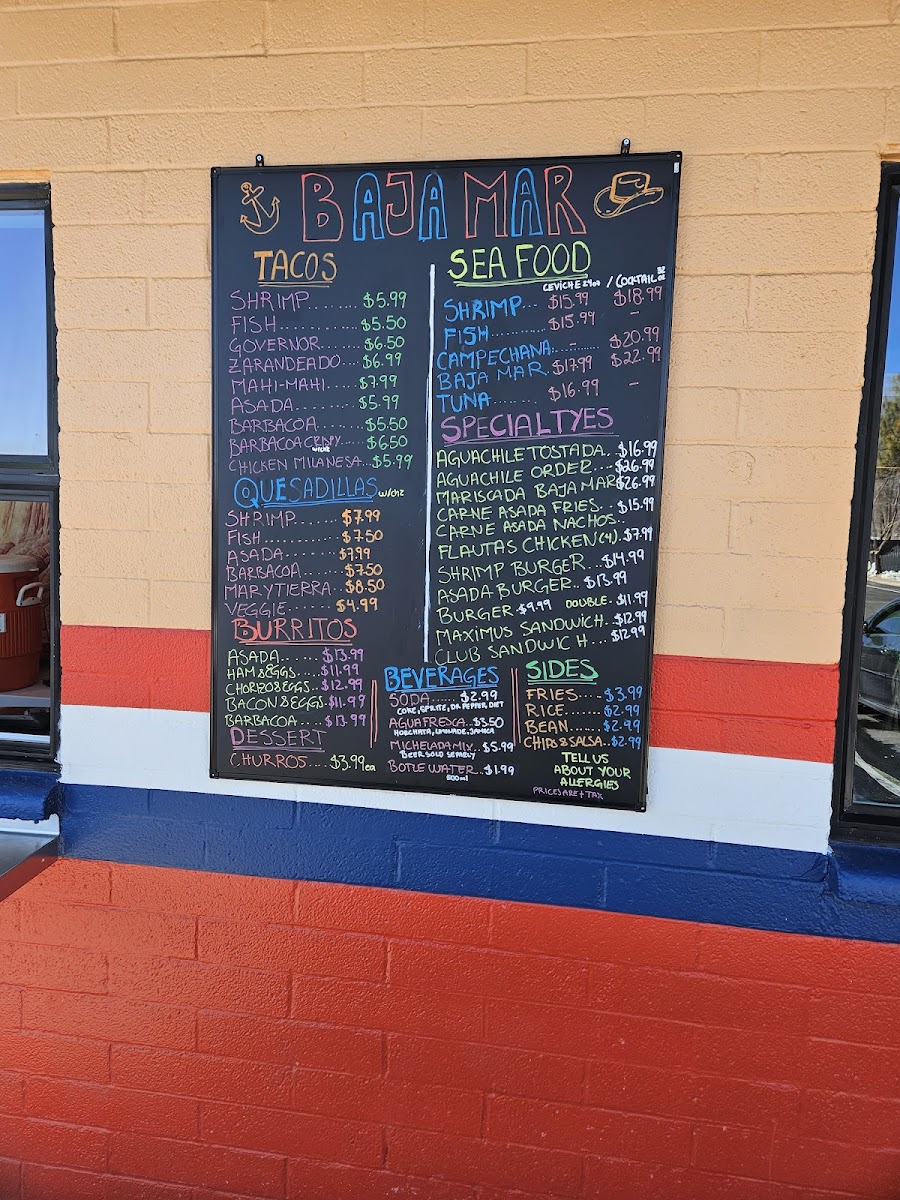 BAJA MAR
TACOS
SHRIMP......... $5.99
FISH............ $5.50
GOVERNOR....... $6.50
ZARANDEADO... $6.99
MAHI-MAHI..... $7.99
ASADA.......... $5.99
BARBACOA....... $5.50
BARBACOA CRISPY... $6.50
w/chz
CHICKEN MILANESA...$5.99
QUESADILLAS w/chz
SHRIMP....... $7.99
FISH............ $7.50
ASADA........ $7.99
BARBACOA..... $7.50
MARYTIERRA.. $8.50
VEGGIE....... $4.99
BURRITOS
ASADA....... $13.99
HAM &EGGS.... $11.99
CHORIZO&EGGS.. $12.99
BACON &EGGS. $11.99
BARBACOA.... $13.99
DESSERT
CHURROS.... $3.99ea
SEA FOOD
CEVICHE / COCKTAIL
SHRIMP... $15.99 $18.99
FISH.......... $15.99 -
CAMPECHANA... - ..... $20.99
BAJA MAR. $17.99 $22.99
TUNA......... $16.99 -
SPECIALTYES
AGUACHILE TOSTADA.. $16.99
AGUACHILE ORDER.... $26.99
MARISCADA BAJA MAR $26.99
CARNE ASADA FRIES.. $15.99
CARNE ASADA NACHOS..
FLAUTAS CHICKEN (4). $7.99
SHRIMP BURGER... $14.99
ASADA BURGER.. $13.99
BURGER. $9.99 DOUBLE. $11.99
MAXIMUS SANDWICH. $12.99
CLUB SANDWICH.... $12.99
BEVERAGES
SODA....... $2.99
COKE, SPRITE, DR PEPPER, DIET
AGUA FRESCA... $3.50
HORCHATA, LIMONADE, JAMICA
MICHELADA MIX... $5.99
BEER SOLD SEPARLY
BOTLE WATER... $1.99
500 ml
SIDES
FRIES.... $3.99
RICE....... $2.99
BEAN....... $2.99
CHIPS & SALSA.. $2.99
TELL US
ABOUT YOUR
ALLERGIES
PRICES ARE + TAX